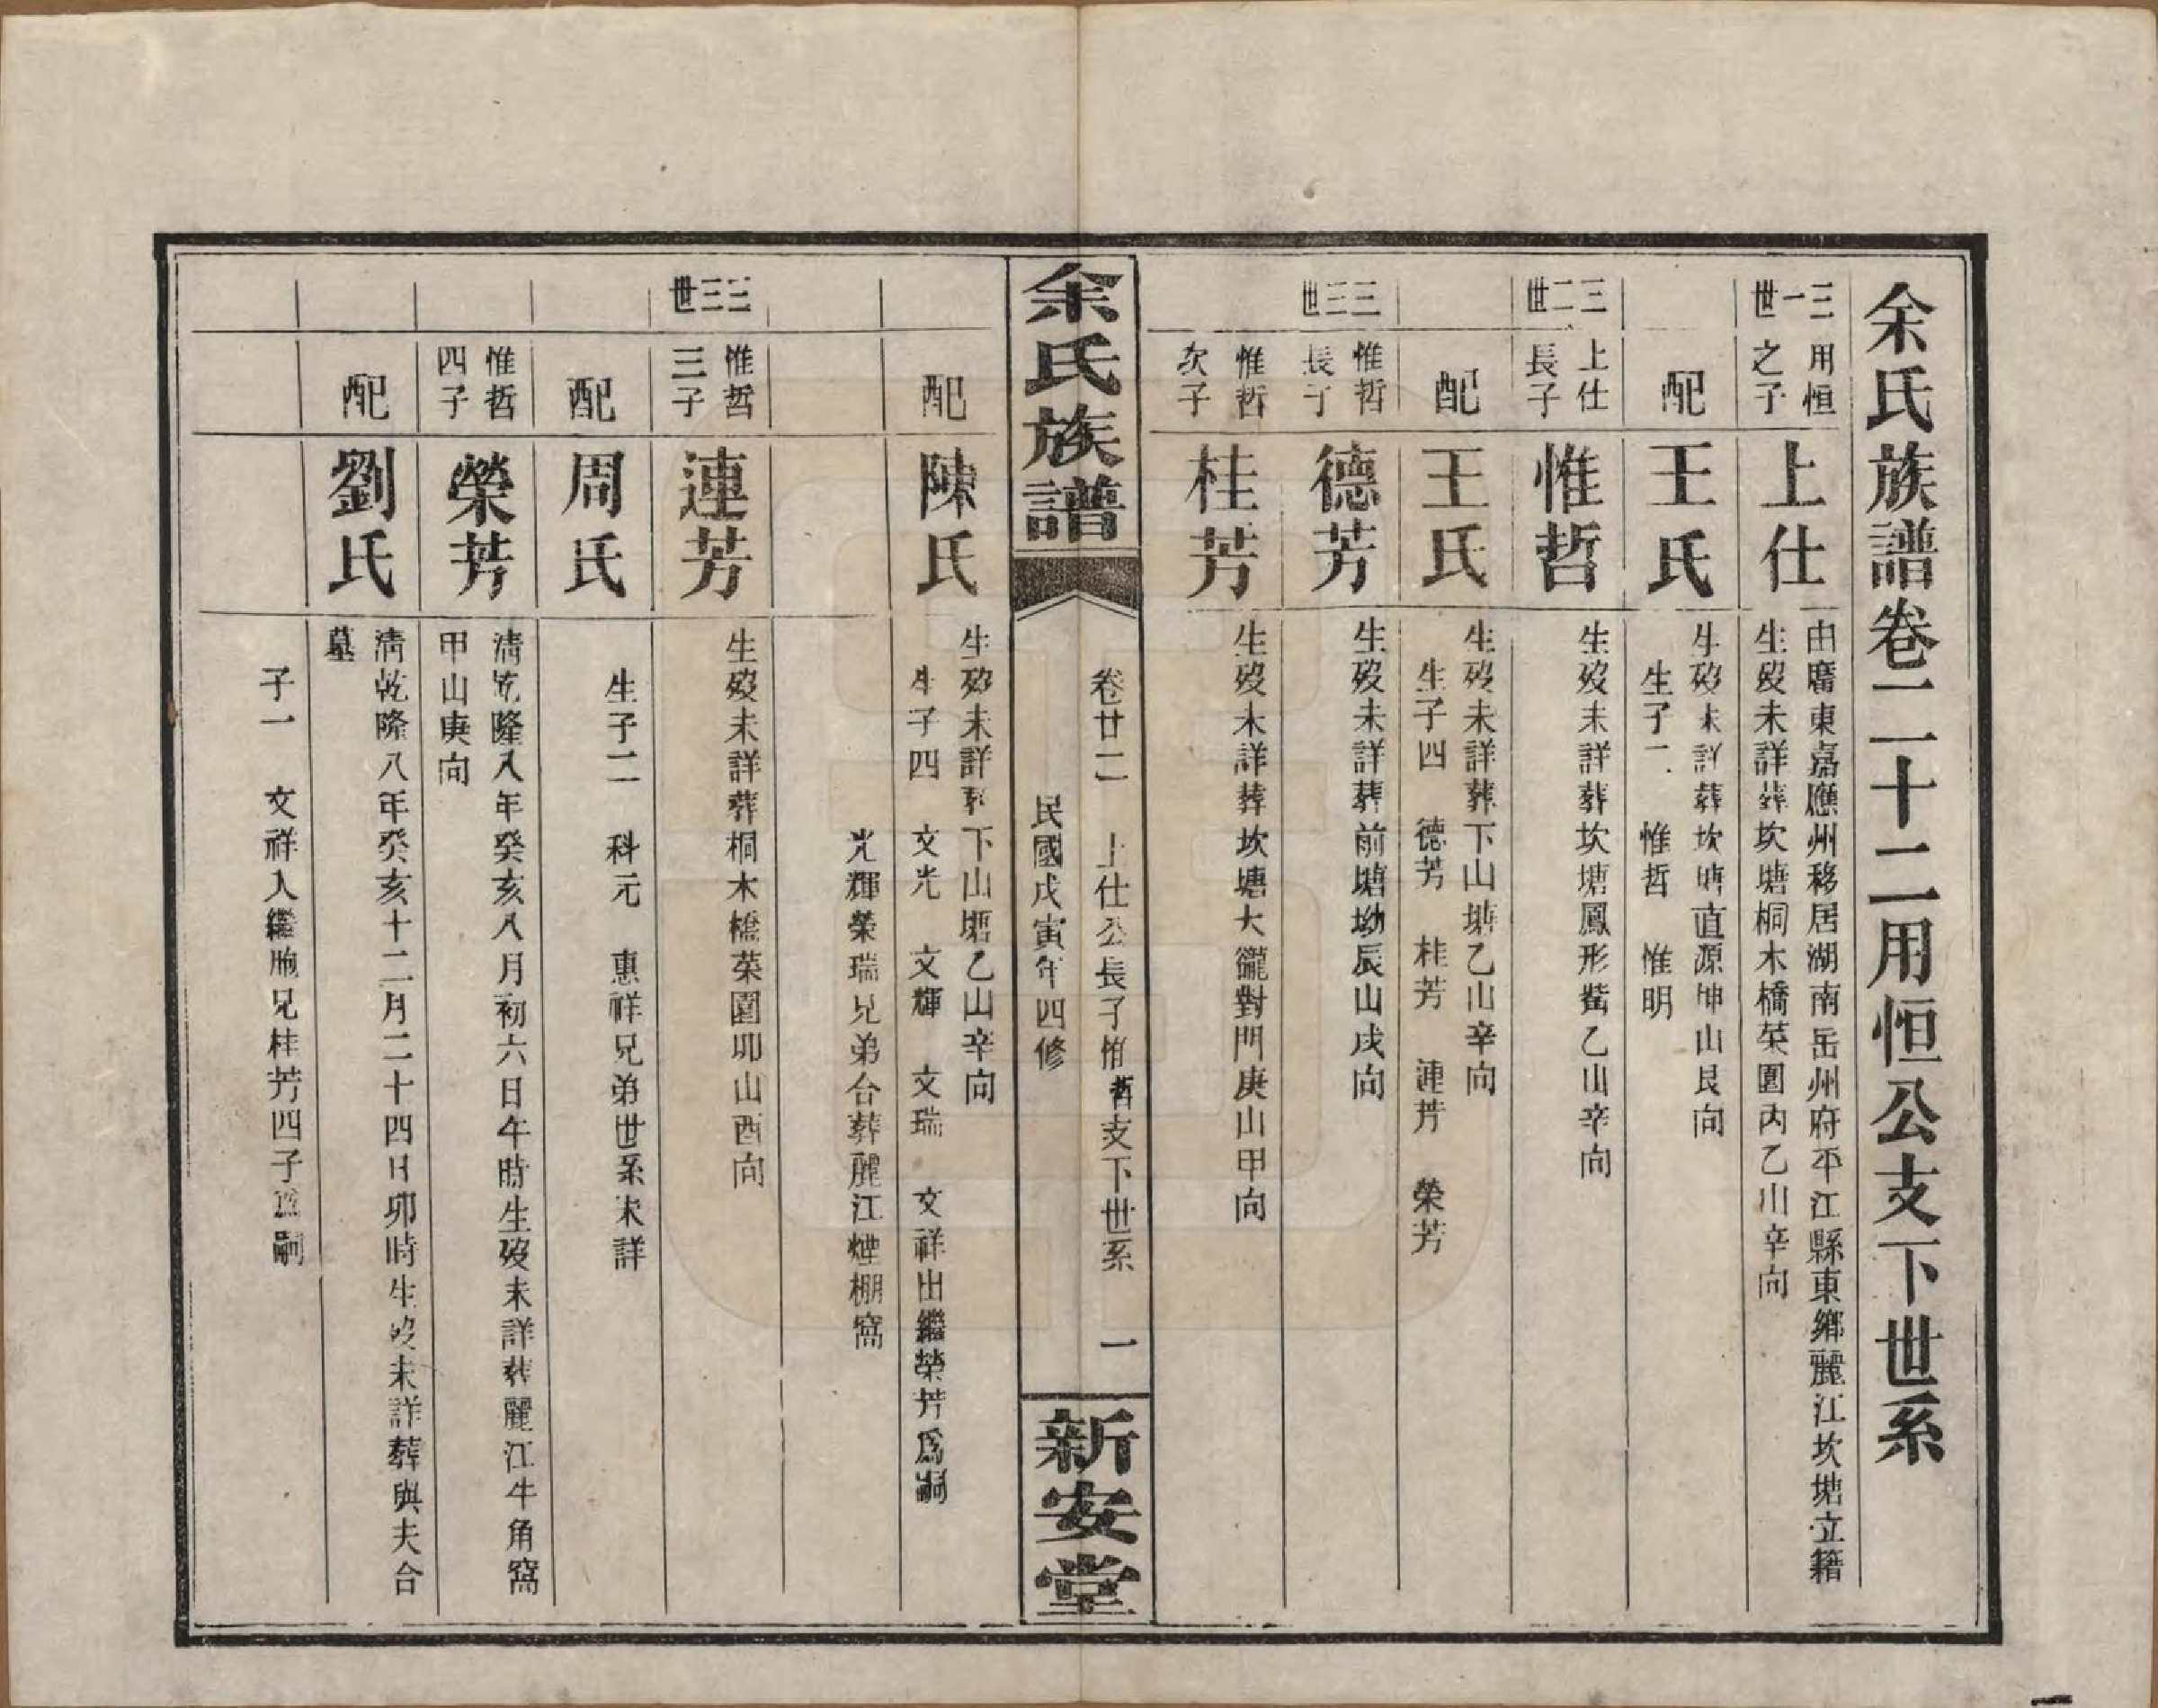 余氏族譜卷二十二用恒公支下世系
三一世
用恒
之子
上仕
由廣東嘉應州移居湖南岳州府平江縣東鄉麗江坎塘立籍
生歿未詳葬坎塘桐木橋菜園內乙山辛向
配
王氏
生歿未詳葬坎塘直源坤山艮向
生子二 惟哲 惟明
三二世
上仕
長子
惟哲
生歿未詳葬坎塘鳳形嘴乙山辛向
配
王氏
生歿未詳葬下山塘乙山辛向
生子四 德芳 桂芳 連芳 榮芳
三三世
惟哲
長子
德芳
生歿未詳葬前塘坳辰山戌向
惟哲
次子
桂芳
生歿未詳葬坎塘大衕對門庚山甲向
余氏族譜
卷廿二 上仕公長子惟哲支下世系 一
民國戊寅年四修
新安堂
配
陳氏
生歿未詳葬下山塘乙山辛向
生子四 文光 文輝 文瑞 文祥出繼榮芳爲嗣
光輝榮瑞兄弟合葬麗江煙棚窩
三三世
惟哲
三子
連芳
生歿未詳葬桐木橋菜園卯山酉向
配
周氏
生子二 科元 惠祥兄弟世系未詳
惟哲
四子
榮芳
清乾隆八年癸亥八月初六日午時生歿未詳葬麗江牛角窩
甲山庚向
配
劉氏
清乾隆八年癸亥十二月二十四日卯時生歿未詳葬與夫合
墓
子一 文祥入繼胞兄桂芳四子爲嗣